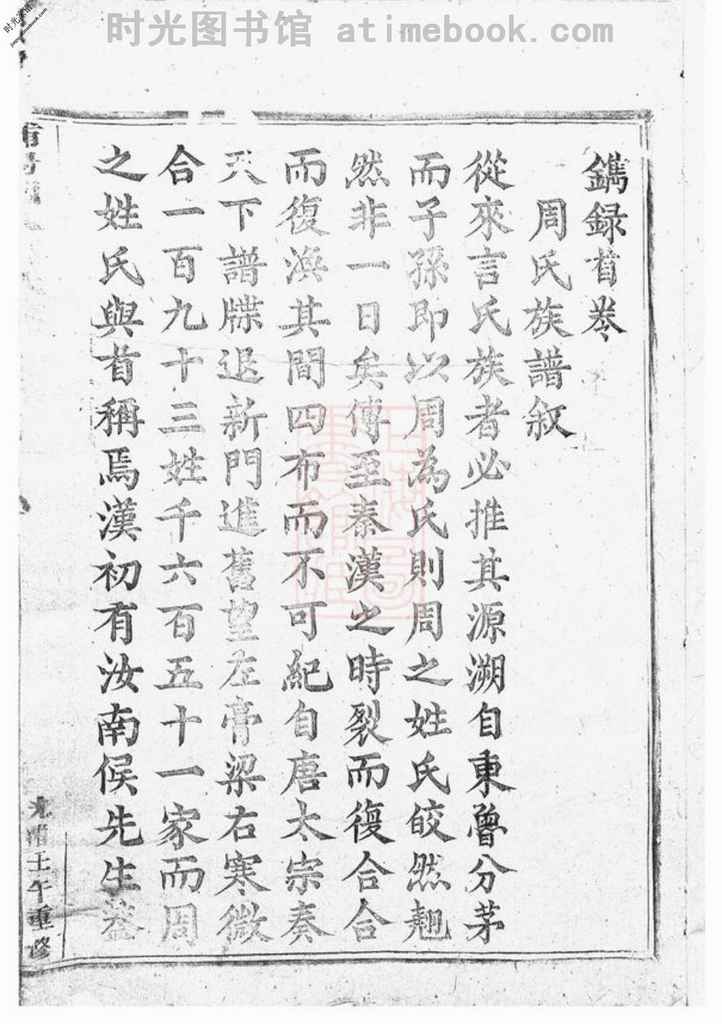 时光图书馆 atimebook.com
鐫録首卷
周氏族譜叙
從來言氏族者必推其源溯自東魯分茅
而子孫即以周為氏則周之姓氏皎然翹
然非一日矣傳至秦漢之時裂而復合合
而復渙其間四布而不可紀自唐太宗奏
天下譜牒退新門進舊望左膏梁右寒微
合一百九十三姓千六百五十一家而周
之姓氏與首稱焉漢初有汝南侯先生
光緒壬午重修